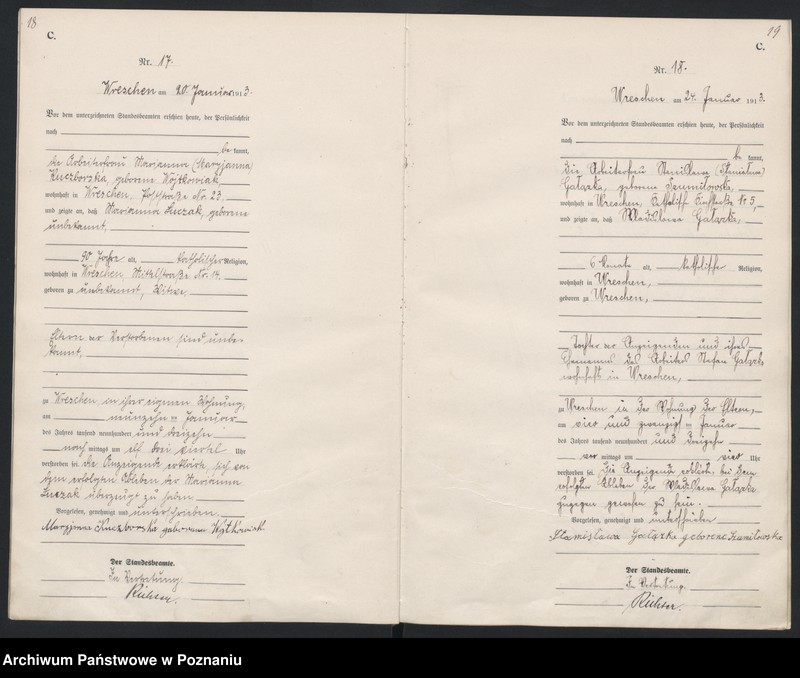 18
C.
Nr. 17.
Wreschen am 20. Januar 1913.
Vor dem unterzeichneten Standesbeamten erschien heute, der Persönlichkeit
nach
be kannt,
die Arbeiterfrau Marianna (Maryjanna
Kuczborska, geborene Wojtkowiak,
wohnhaft in Wreschen, Poststraße Nr. 23,
und zeigte an, daß Marianna Luczak, geborene
unbekannt,
90 Jahre alt, katholischer Religion,
wohnhaft in Wreschen Mittelstraße Nr. 14,
geboren zu unbekannt, Witwe,
Eltern der Verstorbenen sind unbe-
kannt,
zu Wreschen in ihrer eigenen Wohnung,
am neunzehn = Januar
des Jahres tausend neunhundert und dreizehn
nach mittags um elf drei viertel Uhr
verstorben sei. Die Anzeigende erklärte, sich von
dem erfolgten Ableben der Marianna
Luczak überzeugt zu haben
Vorgelesen, genehmigt und unterschrieben.
Maryjanna Kuczborska geborene Wojtkowiak
Der Standesbeamte.
In Vertretung.
Richter.
19
C.
Nr. 18.
Wreschen am 24. Januar 1913.
Vor dem unterzeichneten Standesbeamten erschien heute, der Persönlichkeit
nach
be kannt,
die Arbeiterfrau Stanislawa
Gałązka, geborene Szumiłowska,
wohnhaft in Wreschen, 5,
und zeigte an, daß Wladislawa Gałązka,
6 Monate alt, katholischer Religion,
wohnhaft in Wreschen,
geboren zu Wreschen,
Tochter der Anzeigenden und ihres
Ehemannes des Arbeiters Stefan Gałązka
wohnhaft in Wreschen,
zu Wreschen in der Wohnung der Eltern,
am vier und zwanzigst = Januar
des Jahres tausend neunhundert und dreizehn
vor mittags um vier Uhr
verstorben sei. Die Anzeigende erklärte, bei dem
erfolgten Ableben der Wladislawa Gałązka
zugegen gewesen zu sein.
Vorgelesen, genehmigt und unterschrieben
Stanisława Gałązka geborene Szumiłowska
Der Standesbeamte.
In Vertretung.
Richter.
Archiwum Państwowe w Poznaniu